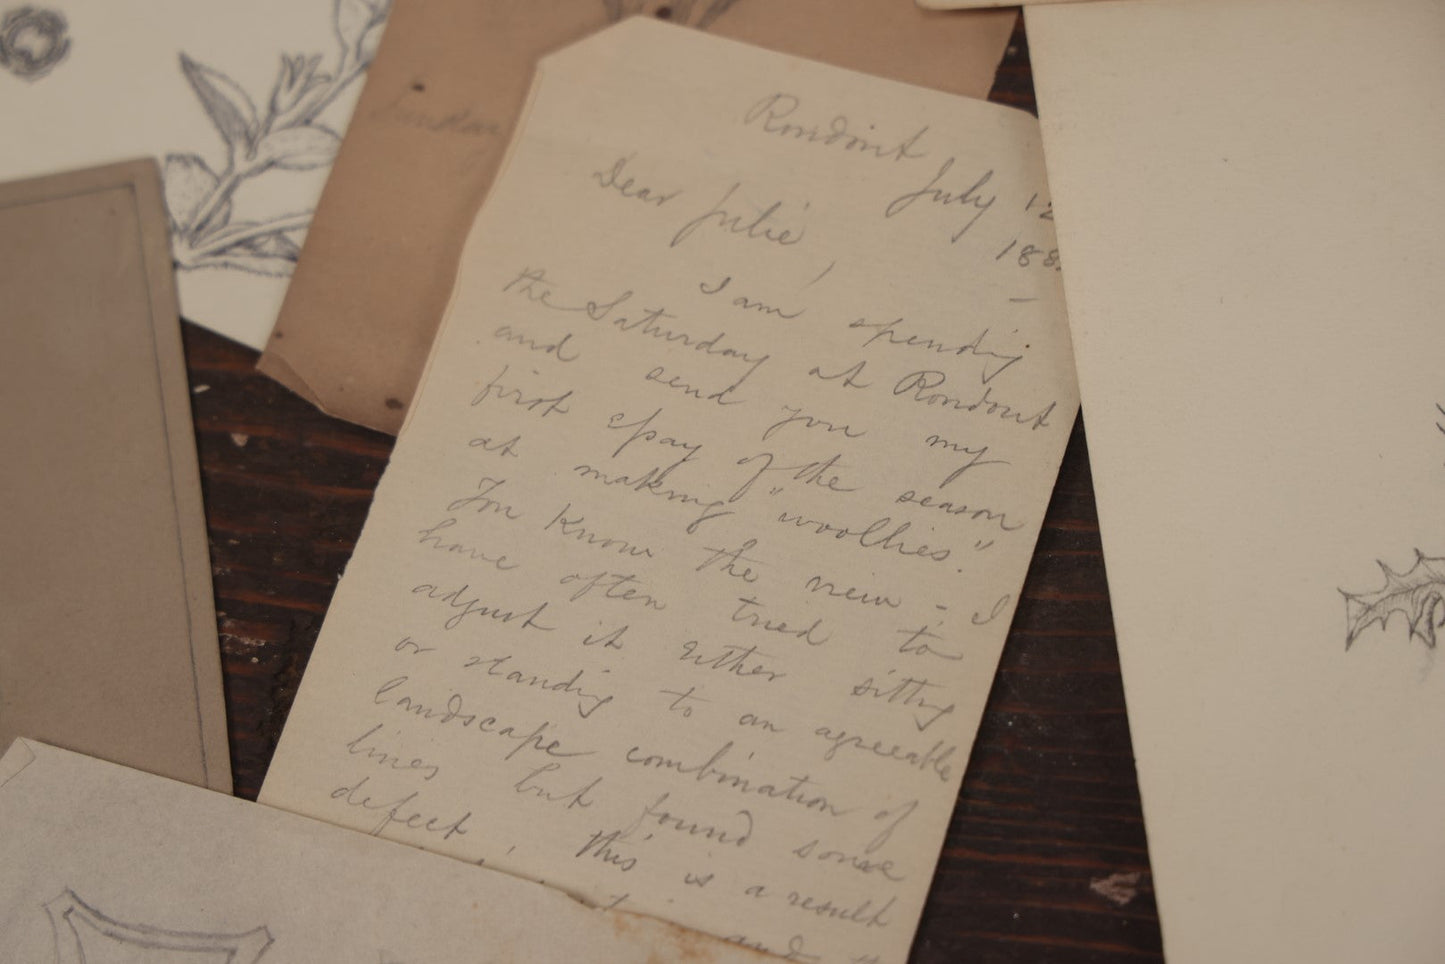 Sunday
Rondout
July 12
188
Dear Julie,
I am spending
the Saturday at Rondout
and send you my
first essay of the season
at making "woollies."
You know the view - I
have often tried to
adjust it either sitting
or standing to an agreeable
landscape combination of
lines but found some
defect, this is a result
and